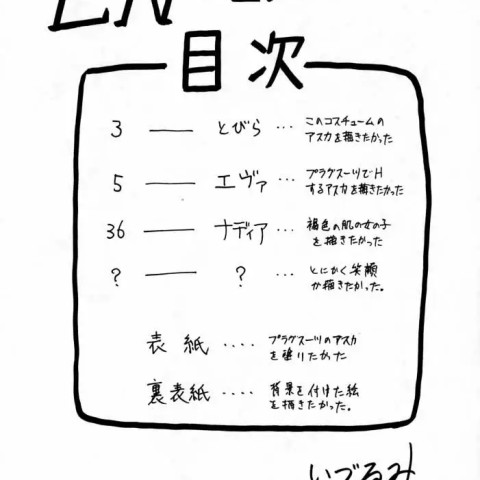 目次
3 ── とびら … このコスチュームの
アスカを描きたかった
5 ── エヴァ … プラグスーツでH
するアスカを描きたかった
36 ── ナディア … 褐色の肌の女の子
を描きたかった
? ── ? … とにかく笑顔
が描きたかった。
表紙 ‥‥ プラグスーツのアスカ
を塗りたかった
裏表紙 ‥‥ 背景を付けた絵
を描きたかった。